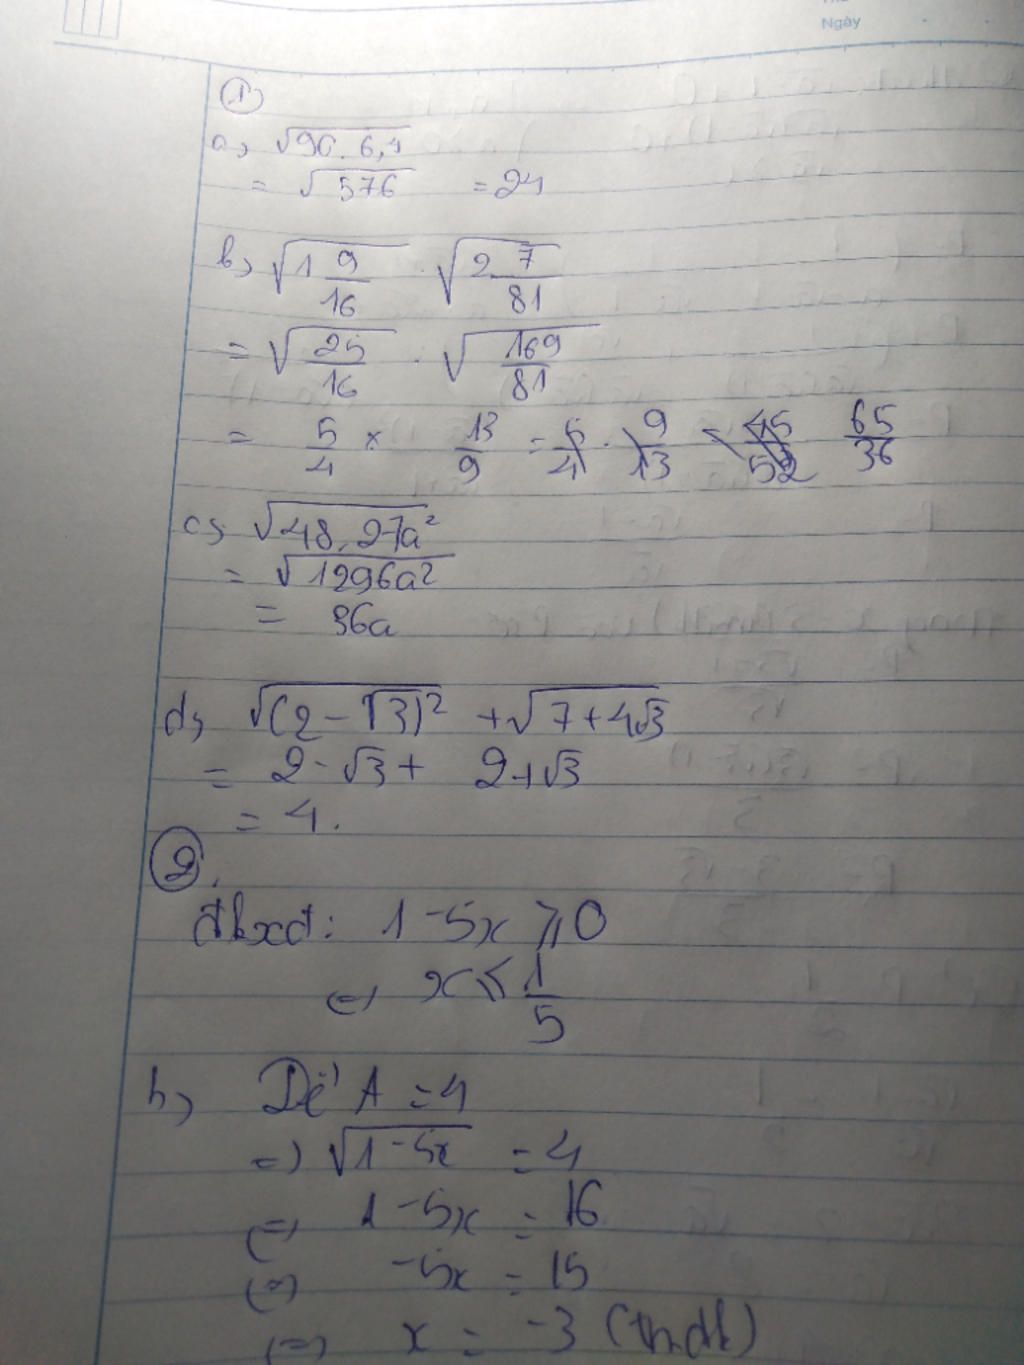 Ngày
①
a, √90.6,4
= √576 = 24
b, √1 9/16 . √2 7/81
= √25/16 . √169/81
= 5/4 × 13/9 = 5/4 . 9/13 = 45/52 65/36
c, √48.27a²
= √1296a²
= 36a
d, √(2-√3)² + √7+4√3
= 2-√3 + 2+√3
= 4.
②.
đkxđ: 1-5x ⩾ 0
(=) x ≤ 1/5
b, Để A = 4
=) √1-5x = 4
(=) 1-5x = 16
(=) -5x = 15
(=) x = -3 (tmđk)